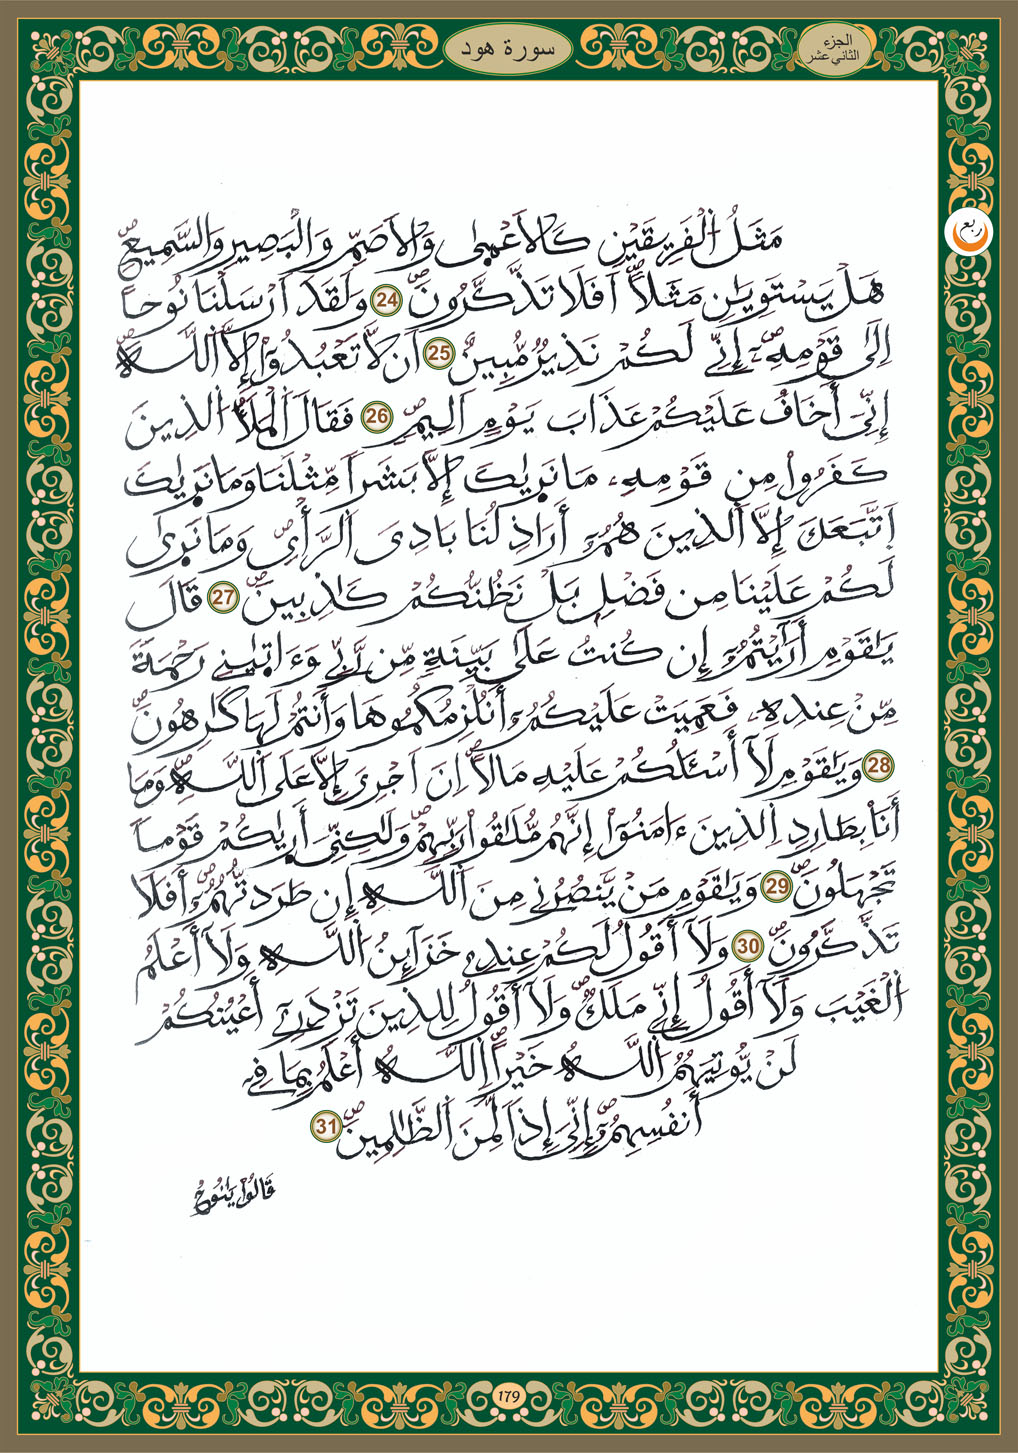 الجزء
الثاني عشر
سورة هود
ربع
مَثَلُ اُ۬لْفَرِيقَيْنِ كَالَاعْمٜىٰ وَالَاصَمِّ وَالْبَصِيرِ وَالسَّمِيعِۖ
هَلْ يَسْتَوِيَٰنِ مَثَلاًۖ اَفَلَا تَذَّكَّرُونَۖ 24 وَلَقَدَ اَرْسَلْنَا نُوحاً
اِلَىٰ قَوْمِهِۦٓۖ إِنِّي لَكُمْ نَذِيرٌ مُّبِينٌۖ 25 اَن لَّا تَعْبُدُوٓاْ إِلَّا اَ۬للَّهَۖ
إِنِّيَ أَخَافُ عَلَيْكُمْ عَذَابَ يَوْمٍ اَلِيمٍۖ 26 فَقَالَ اَ۬لْمَلَأُ اُ۬لذِينَ
كَفَرُواْ مِن قَوْمِهِۦ مَا نَرٜىٰكَ إِلَّا بَشَراً مِّثْلَنَا وَمَا نَرٜىٰكَ
اَ۪تَّبَعَكَ إِلَّا اَ۬لذِينَ هُمُۥٓ أَرَاذِلُنَا بَادِيَ اَ۬لرَّأْيِۖ وَمَا نَرٜىٰ
لَكُمْ عَلَيْنَا مِن فَضْلِۢ بَلْ نَظُنُّكُمْ كَٰذِبِينَۖ 27 قَالَ
يَٰقَوْمِ أَرَٰٓيْتُمُۥٓ إِن كُنتُ عَلَىٰ بَيِّنَةٍ مِّن رَّبِّي وَءَاتٜيٰنِي رَحْمَةً
مِّنْ عِندِهِۦ فَعَمِيَتْ عَلَيْكُمُۥٓ أَنُلْزِمُكُمُوهَا وَأَنتُمْ لَهَا كَٰرِهُونَۖ
28 وَيَٰقَوْمِ لَآ أَسْـَٔلُكُمْ عَلَيْهِ مَالاًۖ اِنَ اَجْرِيَ إِلَّا عَلَى اَ۬للَّهِۖ وَمَآ
أَنَا بِطَارِدِ اِ۬لذِينَ ءَامَنُوٓاْۖ إِنَّهُم مُّلَٰقُواْ رَبِّهِمْۖ وَلَٰكِنِّيَ أَرٜىٰكُمْ قَوْماً
تَجْهَلُونَۖ 29 وَيَٰقَوْمِ مَنْ يَّنصُرُنِي مِنَ اَ۬للَّهِ إِن طَرَدتُّهُمُۥٓۖ أَفَلَا
تَذَّكَّرُونَۖ 30 وَلَآ أَقُولُ لَكُمْ عِندِي خَزَآئِنُ اُ۬للَّهِ وَلَآ أَعْلَمُ
اُ۬لْغَيْبَ وَلَآ أَقُولُ إِنِّي مَلَكٌۖ وَلَآ أَقُولُ لِلذِينَ تَزْدَرِيٓ أَعْيُنُكُمْ
لَنْ يُّوتِيَهُمُ اُ۬للَّهُ خَيْراًۖ اِ۬للَّهُ أَعْلَمُ بِمَا فِيٓ
أَنفُسِهِمُۥٓۖ إِنِّيَ إِذاً لَّمِنَ اَ۬لظَّٰلِمِينَۖ 31
قَالُواْ يَٰنُوحُ
179